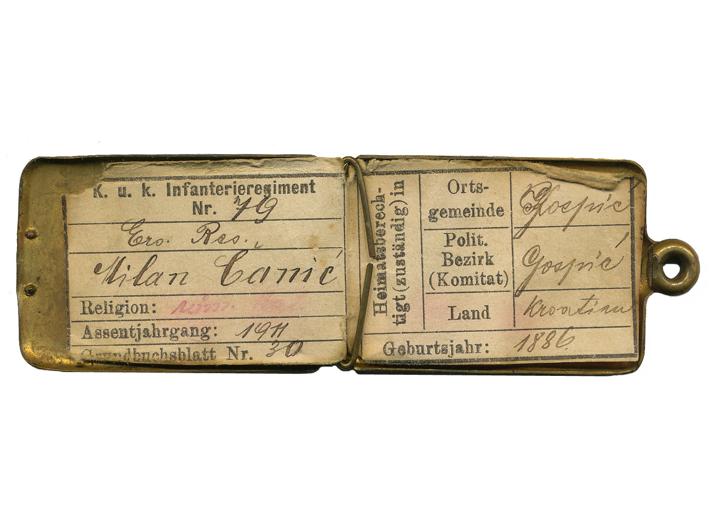 K. u. k. Infanterieregiment
Nr. 79
Ers. Res.
Milan Canić
Religion: röm. kat.
Assentjahrgang: 1911
Grundbuchsblatt Nr. 30
Heimatsberech-
tigt (zuständig) in
Orts-
gemeinde
Gospić
Polit.
Bezirk
(Komitat)
Gospić
Land
Kroatien
Geburtsjahr: 1886